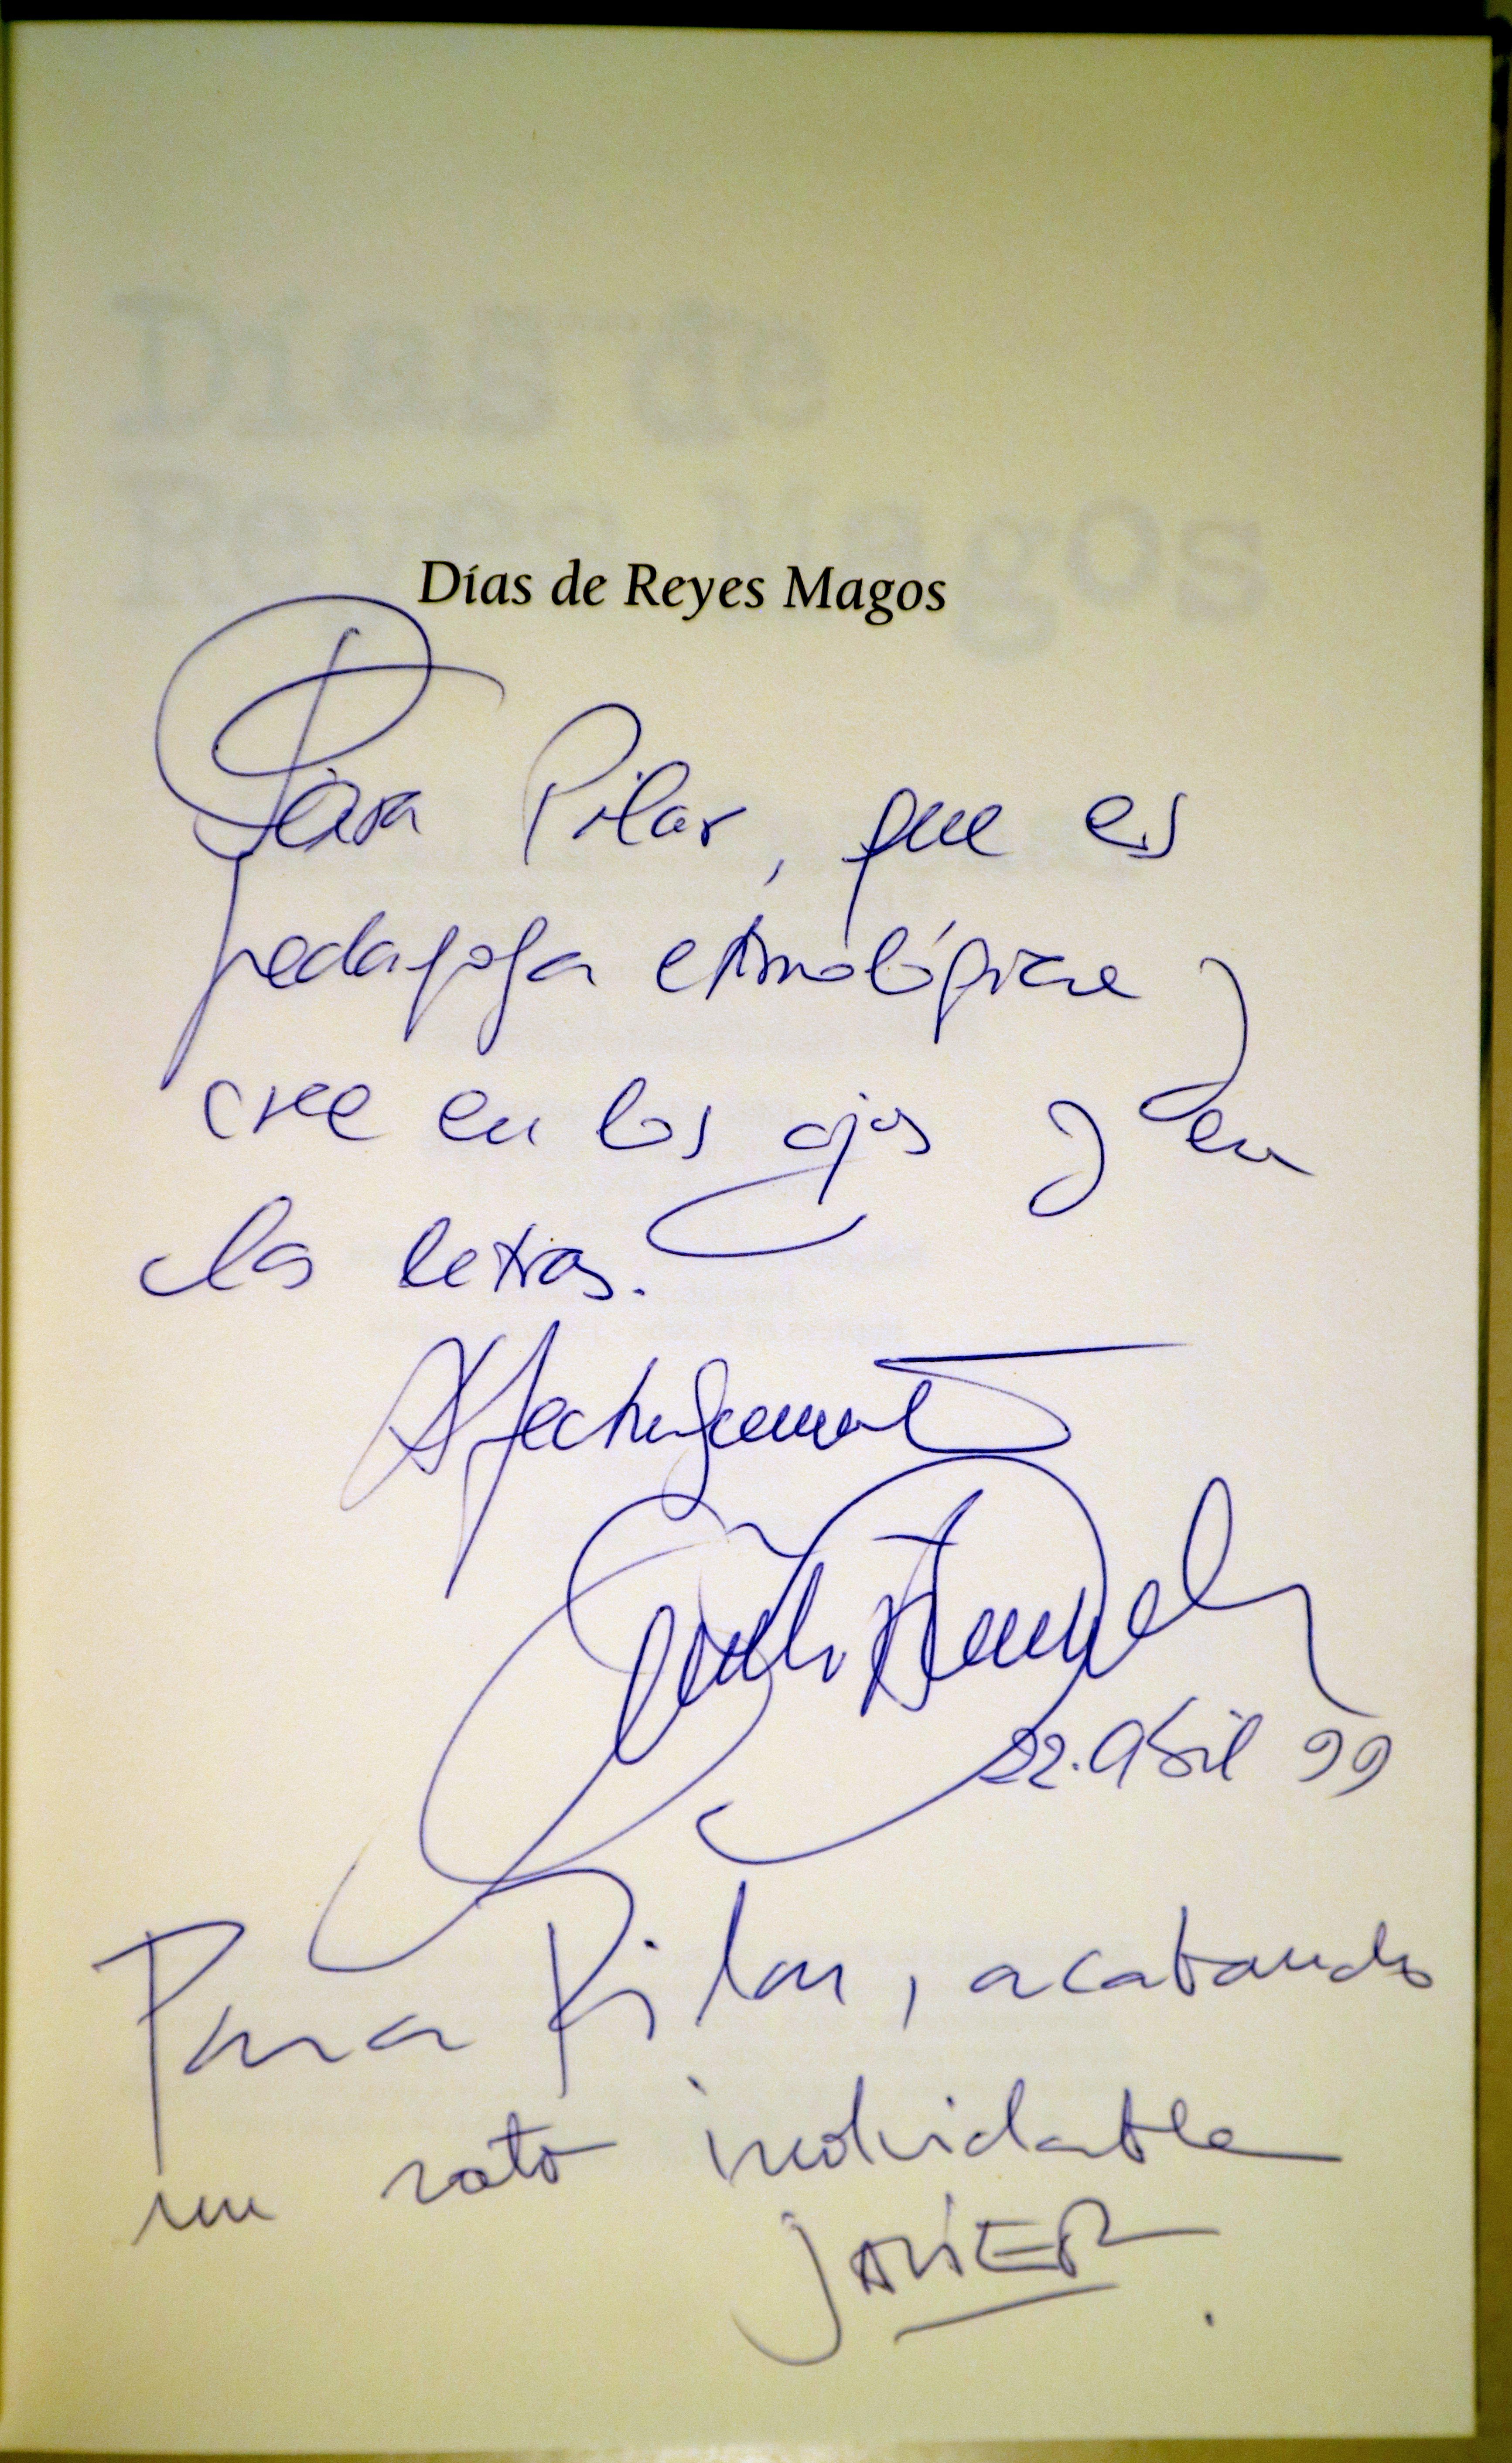 Días de
Reyes Magos
Días de Reyes Magos
Para Pilar, que es
pedagoga etimológica y
cree en los ojos y en
las letras.
Afectuosamente
22. Abril 99
Para Pilar, acabando
un rato inolvidable
JAVIER.